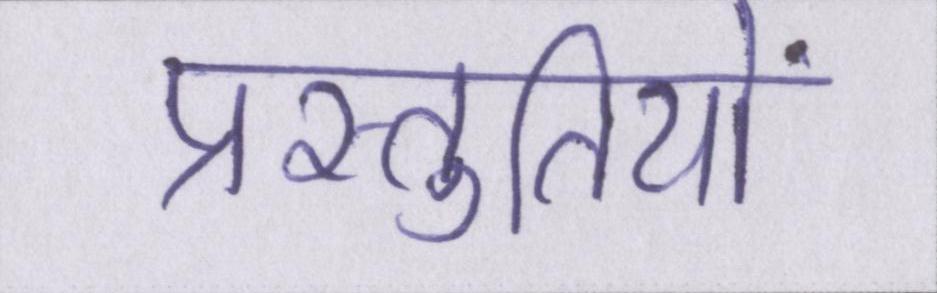 प्रस्तुतियों